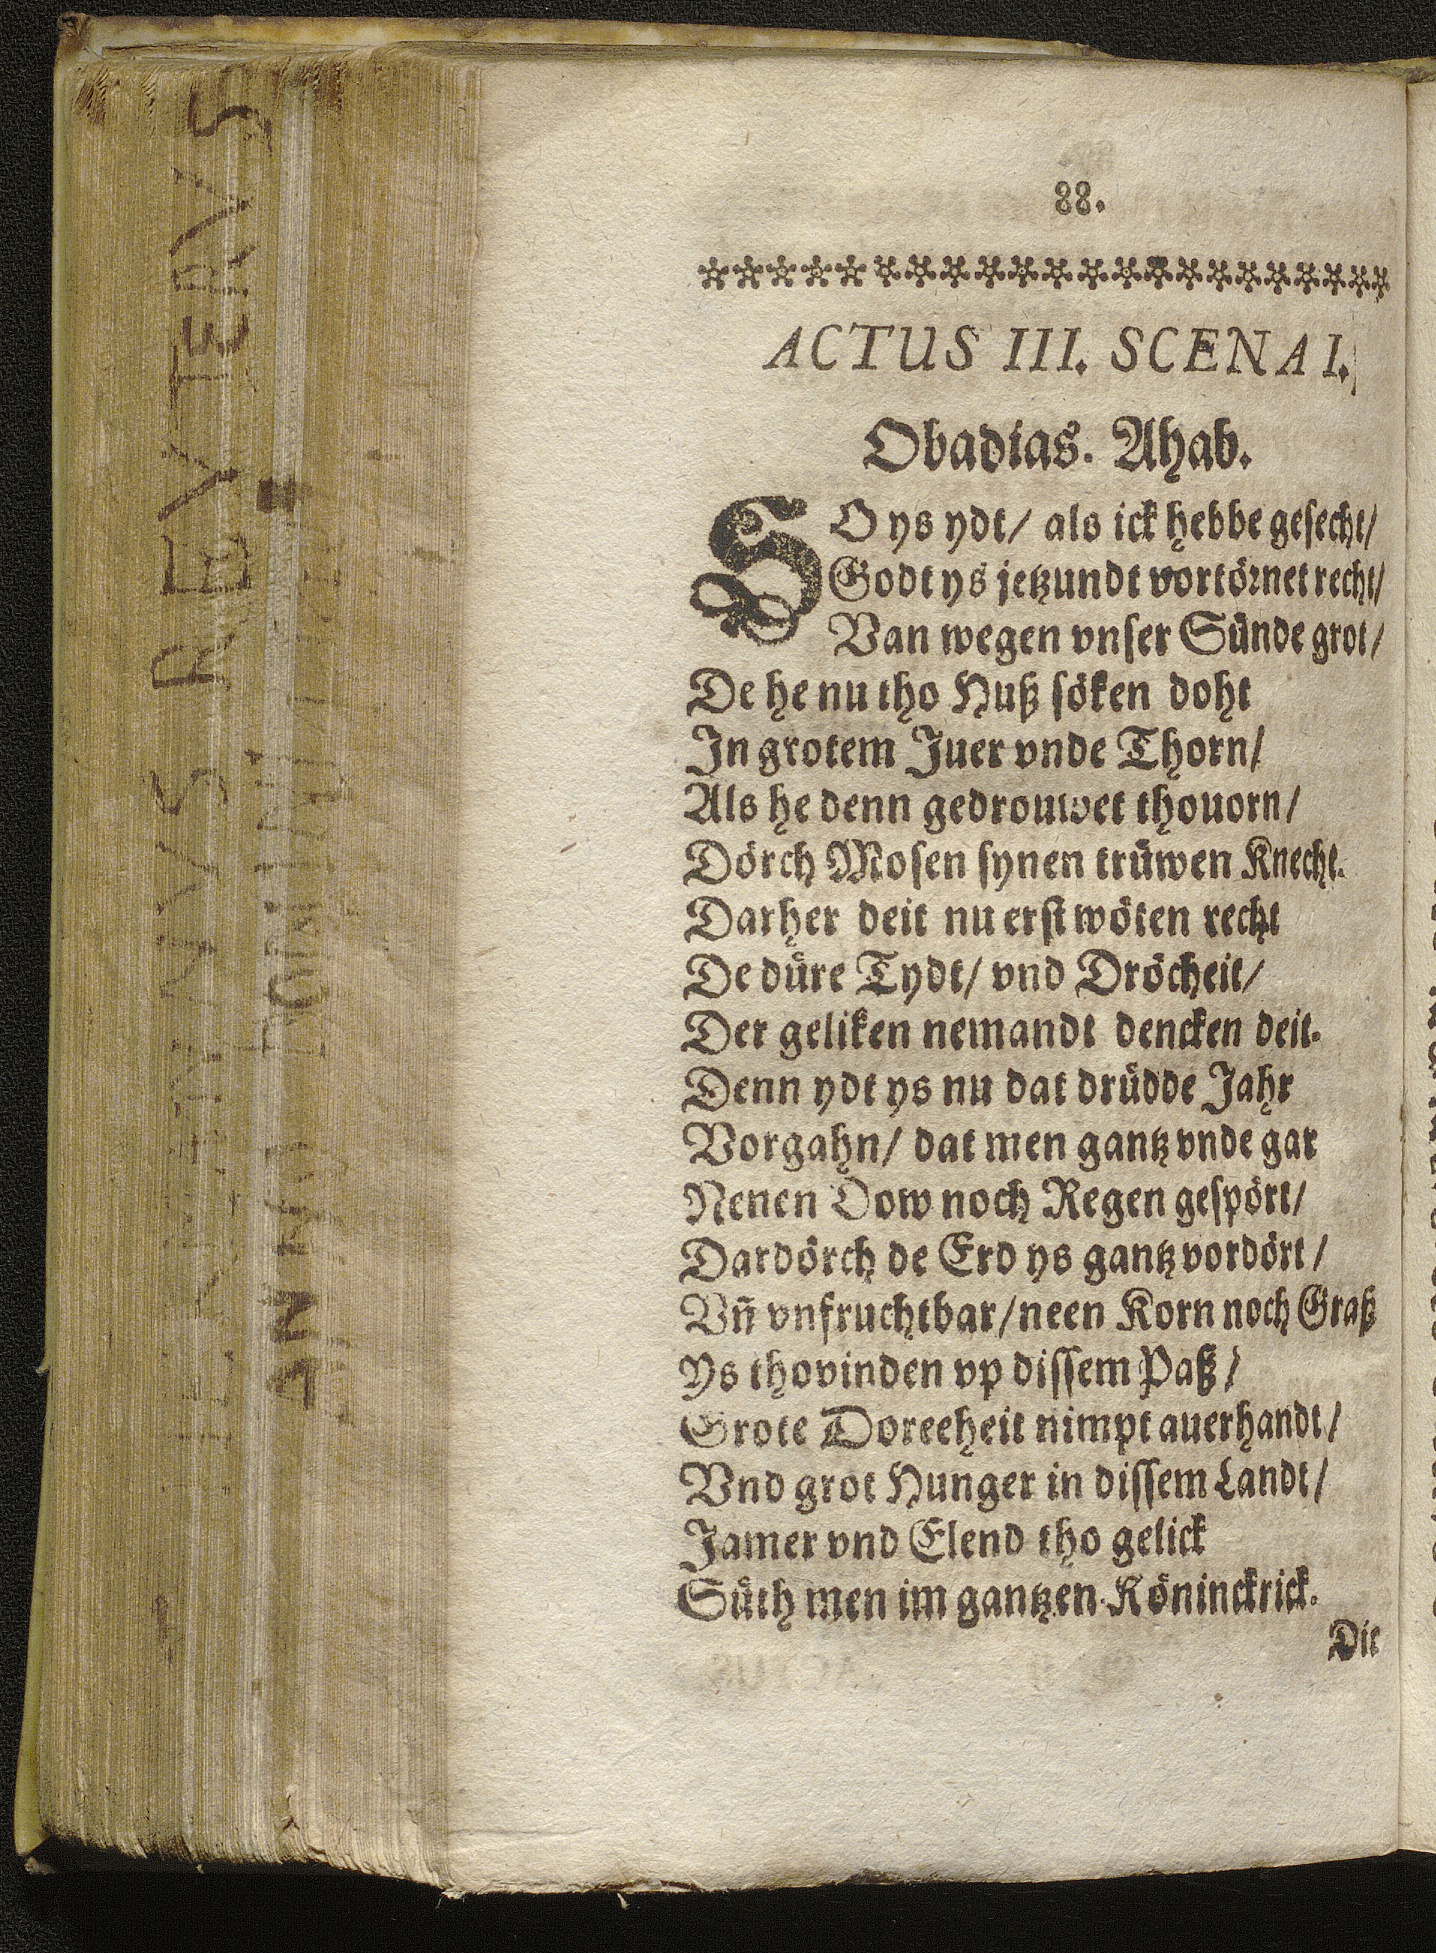 88.
ACTUS III. SCENA I.
Obadias. Ahab.
SO ys ydt/ als ick hebbe gesecht/
Godt ys jetzundt vortörnet recht/
Van wegen vnser Sünde grot/
De he nu tho Huß söken doht
In grotem Juer vnde Thorn/
Als he denn gedrouwet thouorn/
Dörch Mosen synen trüwen Knecht.
Darher deit nu erst wöten recht
De düre Tydt/ vnd Dröcheit/
Der geliken nemandt dencken deit.
Denn ydt ys nu dat drüdde Jahr
Vorgahn/ dat men gantz vnde gar
Nenen Dow noch Regen gespört/
Dardörch de Erd ys gantz vordört/
Vñ vnfruchtbar/ neen Korn noch Graß
Ys thovinden vp dissem Paß/
Grote Doreeheit nimpt auerhandt/
Vnd grot Hunger in dissem Landt/
Jamer vnd Elend tho gelick
Süth men im gantzen Köninckrick.
Die
REVTERVS